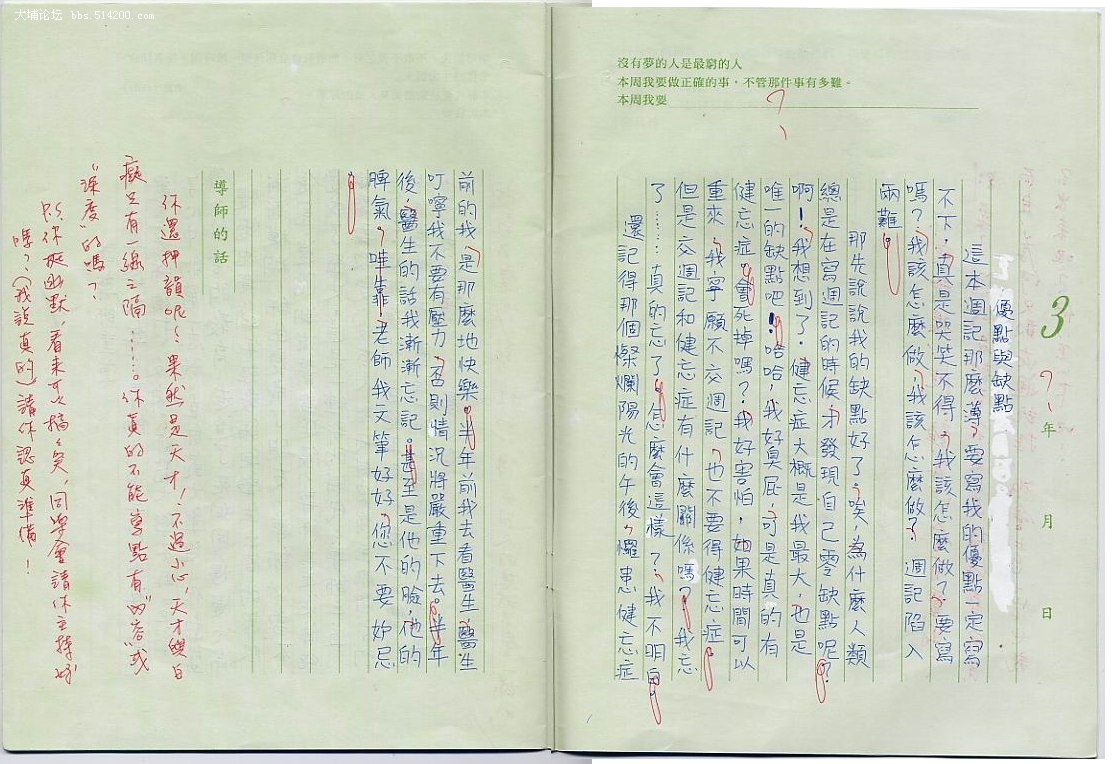 大埔论坛 bbs.514200.com
沒有夢的人是最窮的人
本周我要做正確的事，不管那件事有多難。
本周我要
？
3
？年 月 日
優點與缺點
這本週記那麼薄，要寫我的優點一定寫
不下，真是哭笑不得，我該怎麼做？要寫
嗎？我該怎麼做，我該怎麼做？週記陷入
兩難。
那先說說我的缺點好了。唉，為什麼人類
總是在寫週記的時候，才發現自己零缺點呢？
啊！我想到了，健忘症大概是我最大，也是
唯一的缺點吧！哈哈，我好臭屁，可是真的有
健忘症。會死掉嗎？我好害怕，如果時間可以
重來，我寧願不交週記，也不要得健忘症。
但是交週記和健忘症有什麼關係嗎？我忘
了……真的忘了。怎麼會這樣？我不明白。
還記得那個燦爛陽光的午後，罹患健忘症
前的我，是那麼地快樂。半年前我去看醫生，醫生
叮嚀我不要有壓力，否則情況將嚴重下去。半年
後，醫生的話我漸漸忘記。甚至是他的臉，他的
脾氣。哇靠，老師我文筆好好，您不要妒忌
。
導師的話
你還押韻呢！果然是天才，不過小心，天才與白
癡只有一線之隔……。你真的不能寫點有“內容”或
“深度”的嗎？
P.S.你挺幽默，看來也挺搞笑，同學會請你主持好
嗎？（我說真的）請你認真準備！